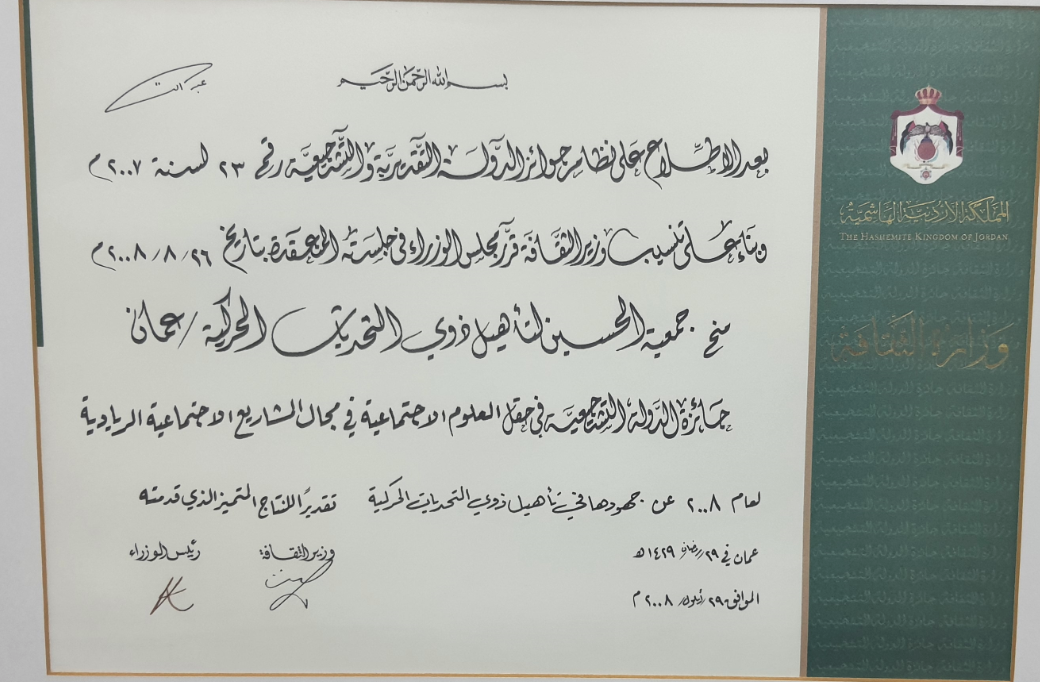 بسم الله الرحمن الرحيم
بعد الاطلاع على نظام جوائز الدولة التقديرية والتشجيعية رقم ٢٣ لسنة ٢٠٠٧ م
وبناء على تنسيب وزير الثقافة قرر مجلس الوزراء في جلسته المنعقدة بتاريخ ٢٦/٨/٢٠٠٨ م
منح جمعية الحسين لتأهيل ذوي التحديات الحركية / عمان
جائزة الدولة التشجيعية في حقل العلوم الاجتماعية في مجال المشاريع الاجتماعية الريادية
لعام ٢٠٠٨ عن جهودها في تأهيل ذوي التحديات الحركية تقديرًا للنتاج المتميز الذي قدمته
عمان في ٢٩ رمضان ١٤٢٩ هـ
الموافق ٢٩ أيلول ٢٠٠٨ م
وزير الثقافة
رئيس الوزراء
المملكة الأردنية الهاشمية
THE HASHEMITE KINGDOM OF JORDAN
وزارة الثقافة